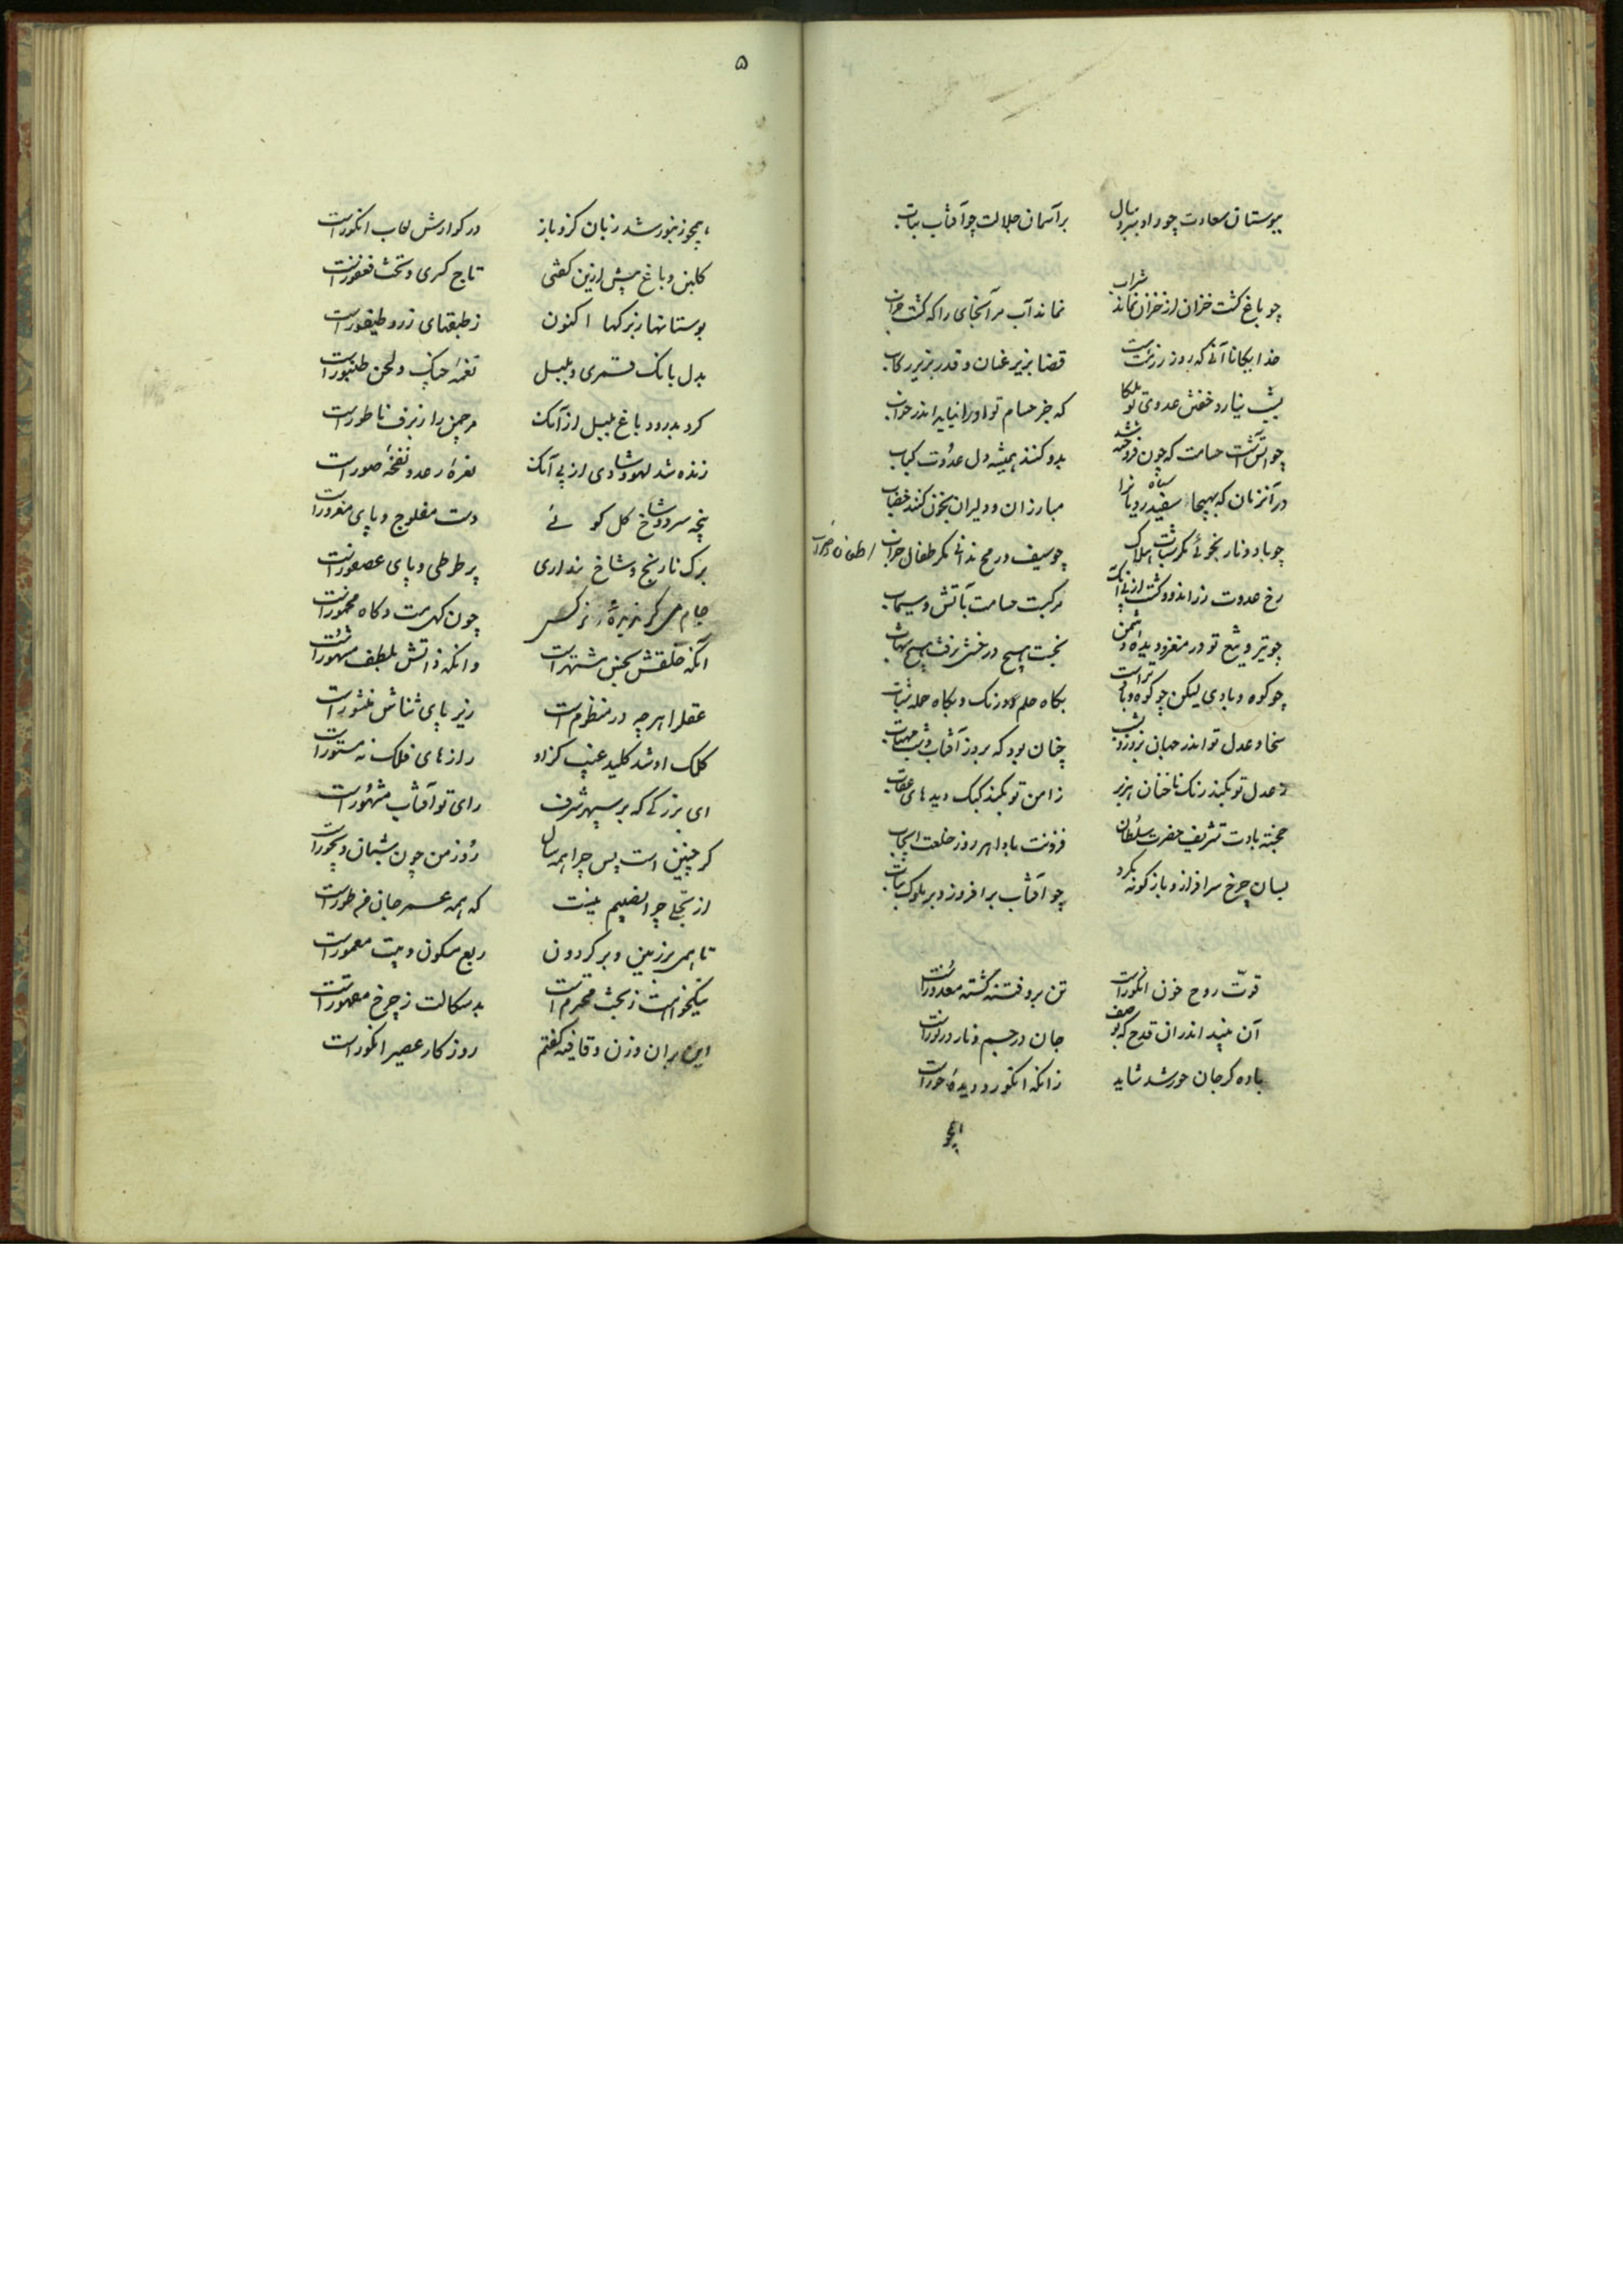 ببوستان سعادت چو راد سرو ببال بر آسمان جلالت چو آفتاب بتاب
چو باغ گشت خزان از خزان نماند شراب نماند آب مر آنجای را که گشت خراب
خدایگانا آنی که روز رزمت هست قضا بزیر عنان و قدر بزیر رکاب
بشب نیارد خفتن عدوی تو ملکا که جز حسام تو او را نیاید اندر خواب
چو آتش است حسامت که چون فروخته شد بدو کنند همیشه دل عدوت کباب
در آنزمان که بهیجا سیاه سفید رویانرا مبارزان و دلیران بخون کنند خضاب
چو باد و نار نجوئی مگر شتاب هلاک چو سیف و رمح ندانی مگر طعان ضراب
رخ عدوت زر اندود گشت از پی آنک مرکبست حسامت بآتش و سیماب
چو تیر و تیغ تو در مغز و دیده دشمن نجست هیچ درخش و نرفت هیچ شهاب
چو کوه و بادی لیکن چو کوه و باد تراست بگاه حلم درنک و بگاه حمله شتاب
سخا و عدل تو اندر جهان بروز و بشب چنان بود که بروز آفتاب و شب مهتاب
ز عدل تو بکند رنک ناخنان هزبر ز امن تو بکند کبک دیدهای عقاب
خجسته بادت تشریف حضرت سلطان فزونت بادا هر روز خلعت و ایجاب
بسان چرخ سرافراز و باز گونه مگرد چو آفتاب برافروز و بر ملوک بتاب
قوت روح خون انگورست تن برو فتنه گشته معذورست
آن نبید اندر ان قدح که بوصف جان در جسم و نار در نورست
باده گر جان حور شد شاید زانکه انگور دیده حورست
همچو
۵
همچو زنبور شد زبان گز و باز در گوارش لعاب انگورست
گلبن و باغ پیش ازین گفتی تاج کسری و تخت فغفورست
بوستانها ز برگها اکنون ز طبقهای زرد طیفورست
بدل بانک قمری و بلبل نغمه چنک و لحن طنبورست
کرد بدرود باغ بلبل از آنک مر چمن را ز برف ناطورست
زنده شد لهو و شادی از پی آنک نعره رعد و نفخه صورست
پنجه سرو و شاخ گل گوئی دست مفلوج و پای مقرورست
برک نارنج و شاخ پنداری پر طوطی و پای عصفورست
جام می گیر زیرا نرگس چون گهی مست و گاه مخمورست
آنکه خلقش بحسن مشتهرست و انکه ذاتش بلطف مشهورست
عقل را هر چه در منظومست زیر پای ثناش منثورست
کلک او شد کلید غیب کزاو رازهای فلک نه مستورست
ای بزرگی که بر سپهر شرف رای تو آفتاب مشهورست
گر چنین است پس چرا همه سال روز من چون شبان دیجورست
از تجلی چرا نصیبم نیست که همه عمر جان من طورست
تا همی بر زمین و بر گردون ربع مسکون و بیت معمورست
نیکخواهت ز بخت محترمست بدسگالت ز چرخ مقهورست
این بران وزن و قافیه گفتم روزگار عصیر انگورست